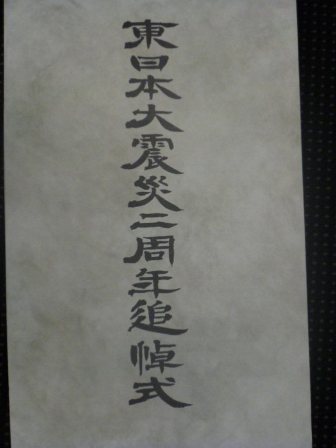 東日本大震災二周年追悼式